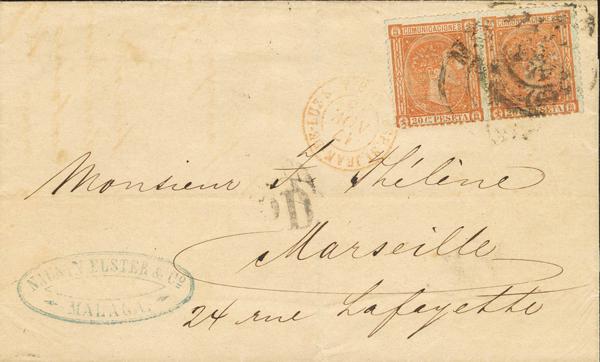 COMUNICACIONES
20 Cs PESETA
COMUNICACIONES
20 Cs PESETA
JEAN-DE-LUZ
PD
Monsieur Thélène
Marseille
24 rue Lafayette
ELSTER & Co
MALAGA.